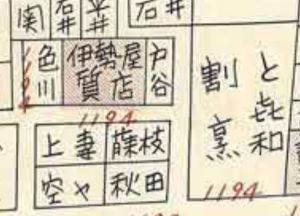 関
石井
平井
石井
色川
伊勢屋
質店
戸谷
1194
1194
割烹
と㐂和
1194
上妻
蓙枝
空や
秋田